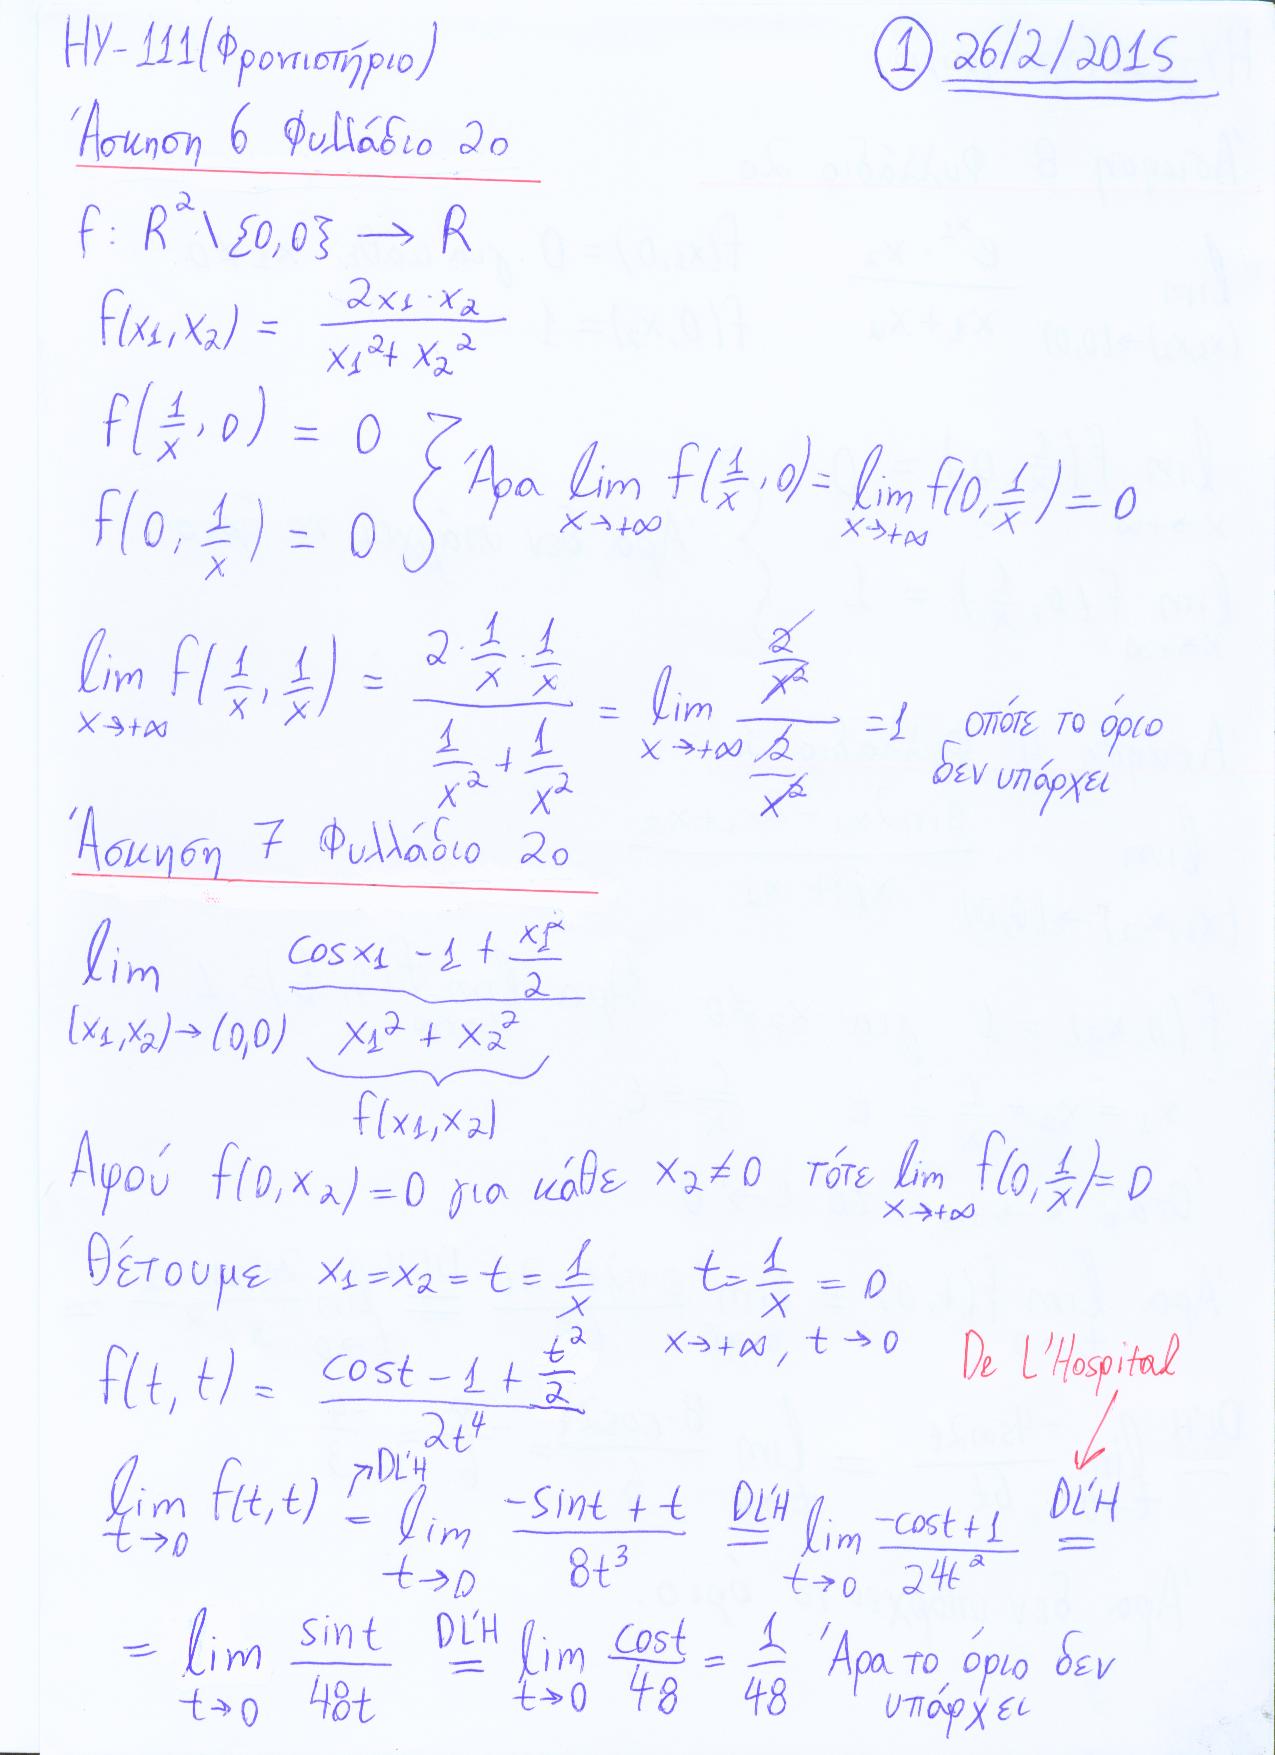 ΗΥ-111 (Φροντιστήριο) ① 26/2/2015
Άσκηση 6 Φυλλάδιο 2ο
f: R² \ {0,0} → R
f(x₁,x₂) = (2x₁·x₂)/(x₁²+x₂²)
f(1/x, 0) = 0
f(0, 1/x) = 0 } Άρα lim_{x→+∞} f(1/x, 0) = lim_{x→+∞} f(0, 1/x) = 0
lim_{x→+∞} f(1/x, 1/x) = (2·1/x·1/x)/(1/x²+1/x²) = lim_{x→+∞} (2/x²)/(2/x²) = 1 οπότε το όριο
δεν υπάρχει
Άσκηση 7 Φυλλάδιο 2ο
lim_{(x₁,x₂)→(0,0)} (cosx₁ - 1 + x₁²/2)/(x₁² + x₂²)
f(x₁,x₂)
Αφού f(0,x₂)=0 για κάθε x₂≠0 τότε lim_{x→+∞} f(0,1/x)=0
Θέτουμε x₁=x₂=t=1/x t=1/x=0
x→+∞, t→0
f(t,t) = (cost - 1 + t²/2)/(2t⁴) De L'Hospital
lim_{t→0} f(t,t) =^{DL'H} lim_{t→0} (-sint + t)/(8t³) =^{DL'H} lim_{t→0} (-cost+1)/(24t²) =^{DL'H}
= lim_{t→0} sint/(48t) =^{DL'H} lim_{t→0} cost/48 = 1/48 Άρα το όριο δεν
υπάρχει